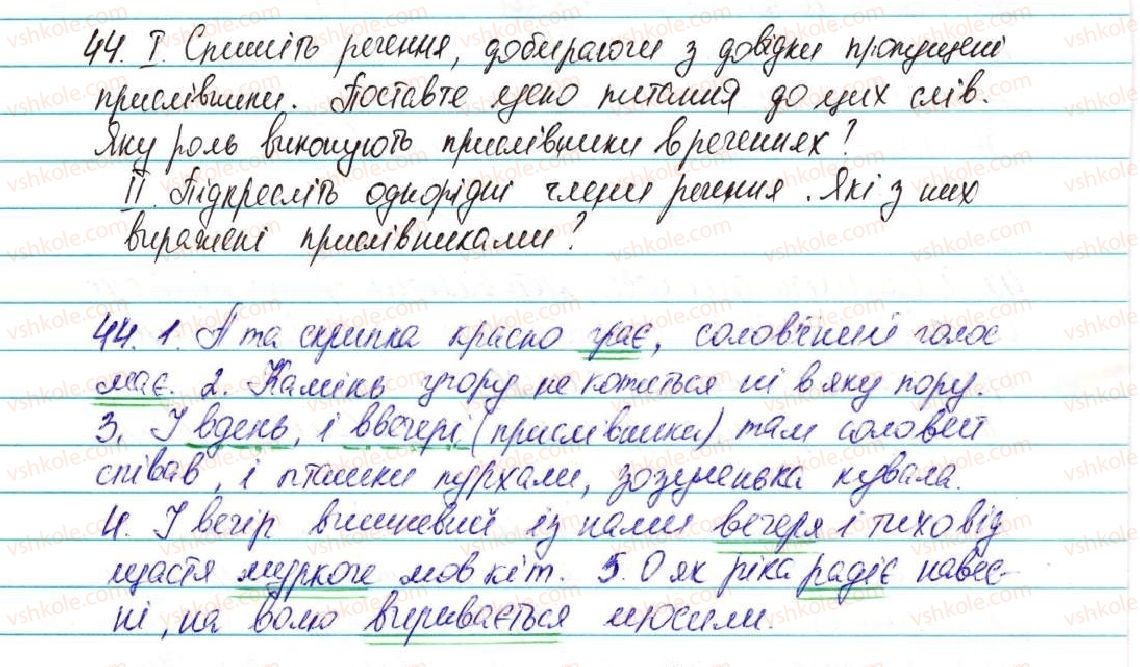 44. I. Спишіть речення, добираючи з довідки пропущені
прислівники. Поставте усно питання до цих слів.
Яку роль виконують прислівники в реченнях?
II. Підкресліть однорідні члени речення. Які з них
виражені прислівниками?
44. 1. А та скрипка красно грає, солов'їний голос
має. 2. Камінь угору не котиться ні в яку пору.
3. І вдень, і ввечері (прислівники) там соловей
співав, і пташки пурхали, зозуленька кувала.
4. І вечір вишневий із нами вечеря і тихо від
щастя муркоче мов кіт. 5. О як ріка радіє навес-
ні, на волю виривається щосили.